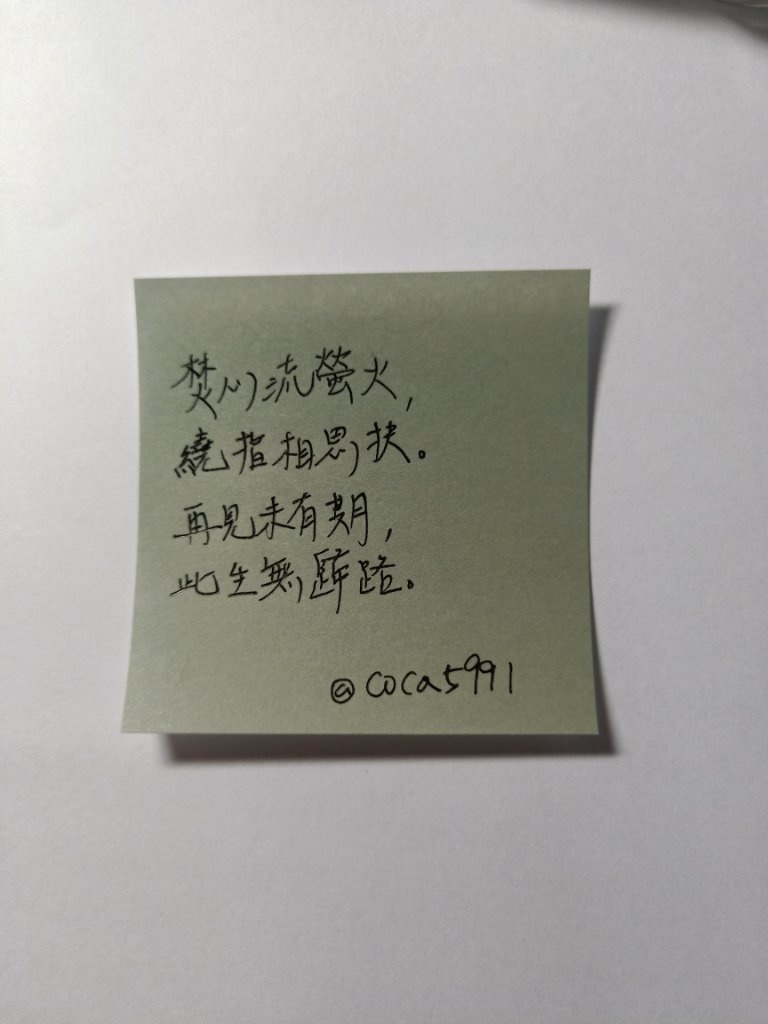 焚川流螢火，
繞指相思扶。
再見未有期，
此生無歸路。
@coca5991